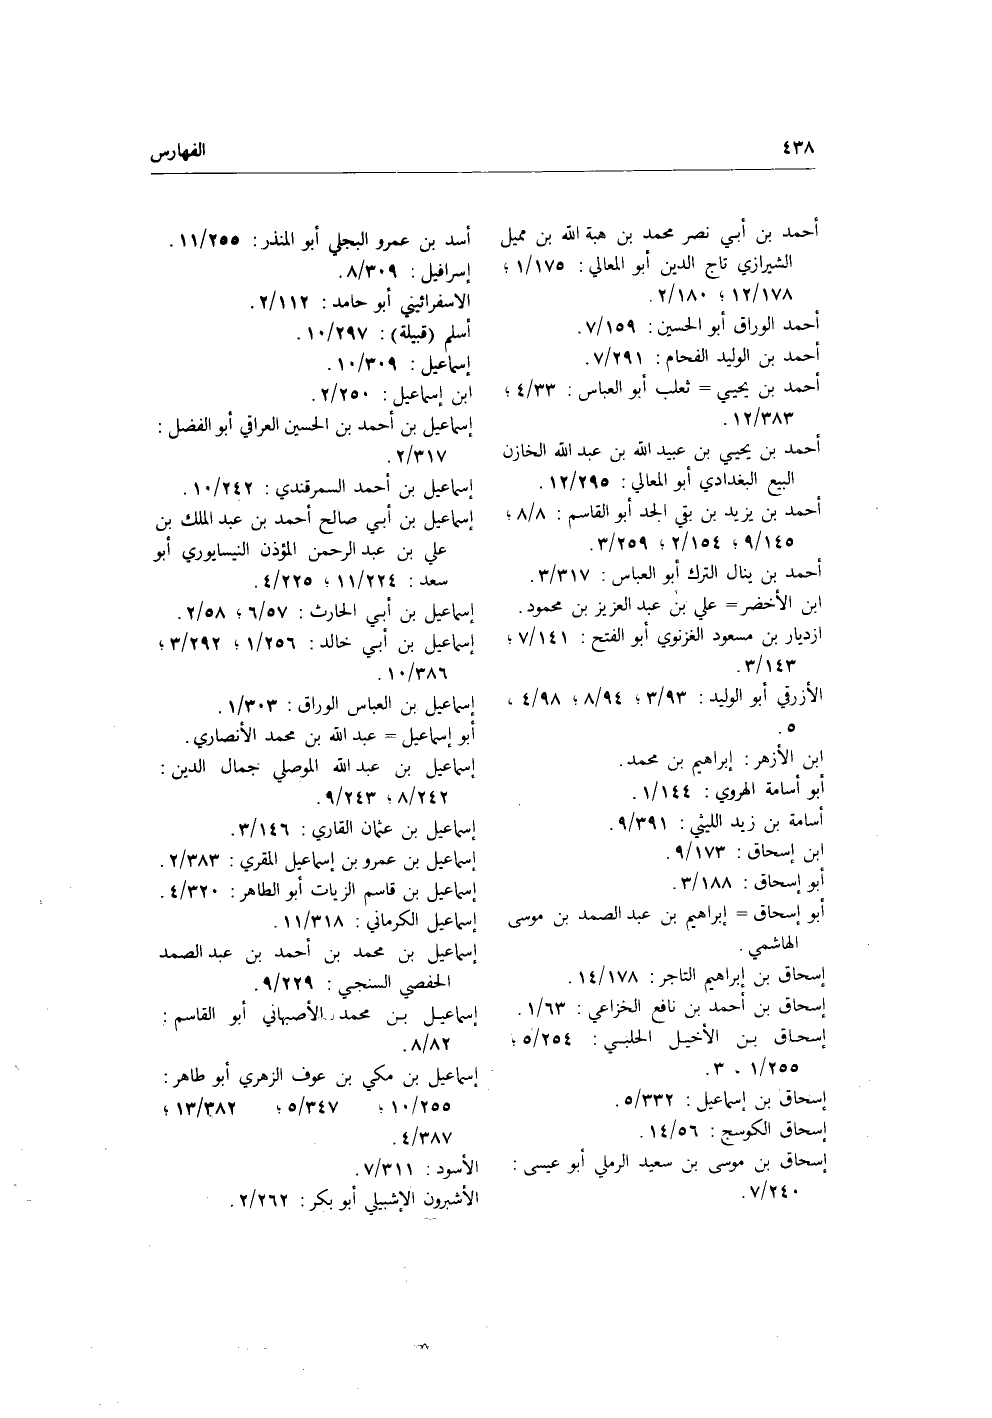 ٤٣٨
الفهارس
أحمد بن أبي نصر محمد بن هبة الله بن مميل
الشيرازي تاج الدين أبو المعالي: ١/١٧٥ ؛
١٢/١٧٨ ؛ ٢/١٨٠.
أحمد الوراق أبو الحسين: ٧/١٥٩.
أحمد بن الوليد الفحام: ٧/٢٩١.
أحمد بن يحيى = ثعلب أبو العباس: ٤/٣٣ ؛
١٢/٣٨٣.
أحمد بن يحيى بن عبيد الله بن عبد الله الخازن
البيع البغدادي أبو المعالي: ١٢/٢٩٥.
أحمد بن يزيد بن بقي الجد أبو القاسم: ٨/٨ ؛
٩/١٤٥ ؛ ٢/١٥٤ ؛ ٣/٢٥٩.
أحمد بن ينال الترك أبو العباس: ٣/٣١٧.
ابن الأخضر = علي بن عبد العزيز بن محمود.
ازديار بن مسعود الغزنوي أبو الفتح: ٧/١٤١ ؛
٣/١٤٣.
الأزرقي أبو الوليد: ٣/٩٣ ؛ ٨/٩٤ ؛ ٤/٩٨ ،
٥.
ابن الأزهر: إبراهيم بن محمد.
أبو أسامة الهروي: ١/١٤٤.
أسامة بن زيد الليثي: ٩/٣٩١.
ابن إسحاق: ٩/١٧٣.
أبو إسحاق: ٣/١٨٨.
أبو إسحاق = إبراهيم بن عبد الصمد بن موسى
الهاشمي.
إسحاق بن إبراهيم التاجر: ١٤/١٧٨.
إسحاق بن أحمد بن نافع الخزاعي: ١/٦٣.
إسحاق بن الأخيل الحلبي: ٥/٢٥٤ ؛
١/٢٥٥ ، ٣.
إسحاق بن إسماعيل: ٥/٣٣٢.
إسحاق الكوسج: ١٤/٥٦.
إسحاق بن موسى بن سعيد الرملي أبو عيسى:
٧/٢٤٠.
أسد بن عمرو البجلي أبو المنذر: ١١/٢٥٥.
إسرافيل: ٨/٣٠٩.
الاسفرائيني أبو حامد: ٢/١١٢.
أسلم (قبيلة): ١٠/٢٩٧.
إسماعيل: ١٠/٣٠٩.
ابن إسماعيل: ٢/٢٥٠.
إسماعيل بن أحمد بن الحسين العراقي أبو الفضل:
٢/٣١٧.
إسماعيل بن أحمد السمرقندي: ١٠/٢٤٢.
إسماعيل بن أبي صالح أحمد بن عبد الملك بن
علي بن عبد الرحمن المؤذن النيسايوري أبو
سعد: ١١/٢٢٤ ؛ ٤/٢٢٥.
إسماعيل بن أبي الحارث: ٦/٥٧ ؛ ٢/٥٨.
إسماعيل بن أبي خالد: ١/٢٥٦ ؛ ٣/٢٩٢ ؛
١٠/٣٨٦.
إسماعيل بن العباس الوراق: ١/٣٠٣.
أبو إسماعيل = عبد الله بن محمد الأنصاري.
إسماعيل بن عبد الله الموصلي جمال الدين:
٨/٢٤٢ ؛ ٩/٢٤٣.
إسماعيل بن عثمان القاري: ٣/١٤٦.
إسماعيل بن عمرو بن إسماعيل المقري: ٢/٣٨٣.
إسماعيل بن قاسم الزيات أبو الطاهر: ٤/٣٢٠.
إسماعيل الكرماني: ١١/٣١٨.
إسماعيل بن محمد بن أحمد بن عبد الصمد
الحفصي السنجي: ٩/٢٢٩.
إسماعيل بن محمد الأصبهاني أبو القاسم:
٨/٨٢.
إسماعيل بن مكي بن عوف الزهري أبو طاهر:
١٠/٢٥٥ ؛ ٥/٣٤٧ ؛ ١٣/٣٨٢ ؛
٤/٣٨٧.
الأسود: ٧/٣١١.
الأشبرون الإشبيلي أبو بكر: ٢/٢٦٢.